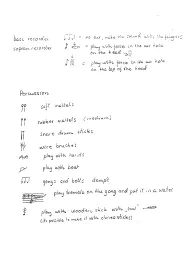 bass recorder
soprano recorder
= no air, make the sound with the fingers
= play with force in the air hole
on the head
= play with force in the air hole
on the top of the head
Percussion
soft mallets
rubber mallets (medium)
snare drum sticks
wire brushes
play with hands
play with beat
gongs and bells damped
play tremolo on the gong and put it in a water
play with wooden stick with
(it's possible to make it with chinese sticks)